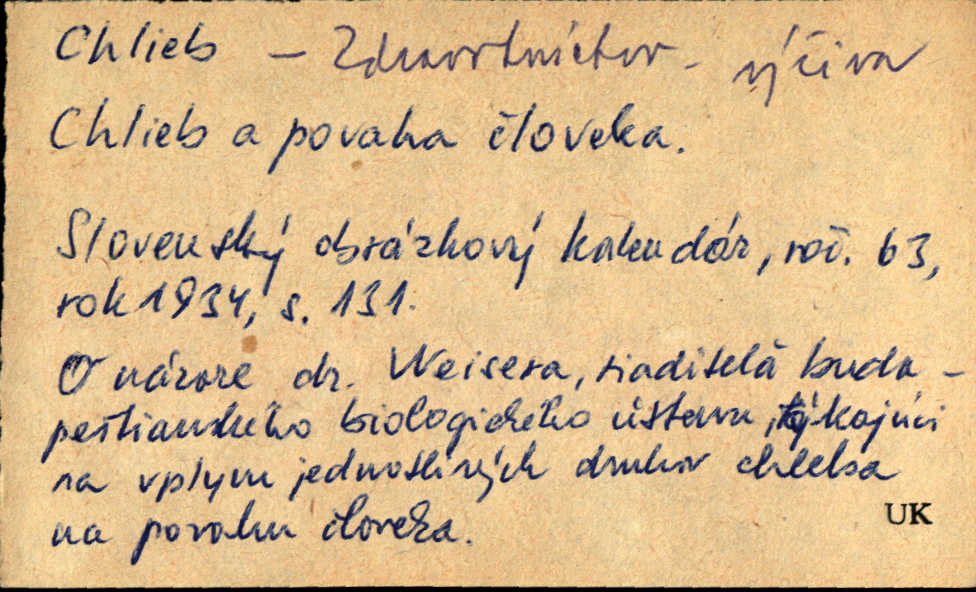 Chlieb – Zdravotníctvo – výživa
Chlieb a povaha človeka.
Slovenský obrázkový kalendár, roč. 63,
rok 1934, s. 131.
O názore dr. Weisera, riaditeľa buda-
peštianskeho biologického ústavu, týkajúci
sa vplyvu jednotlivých druhov chleba
na povahu človeka.
UK